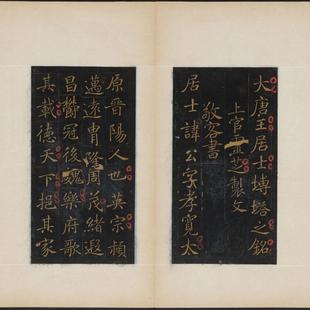 大唐王居士塼塔之銘
上官靈芝製文
敬客書
居士諱公字孝寬太
原晉陽人也英宗穎
邁遠胄隆周茂緒遐
昌鬱冠後魂樂府歌
其載德天下挹其家